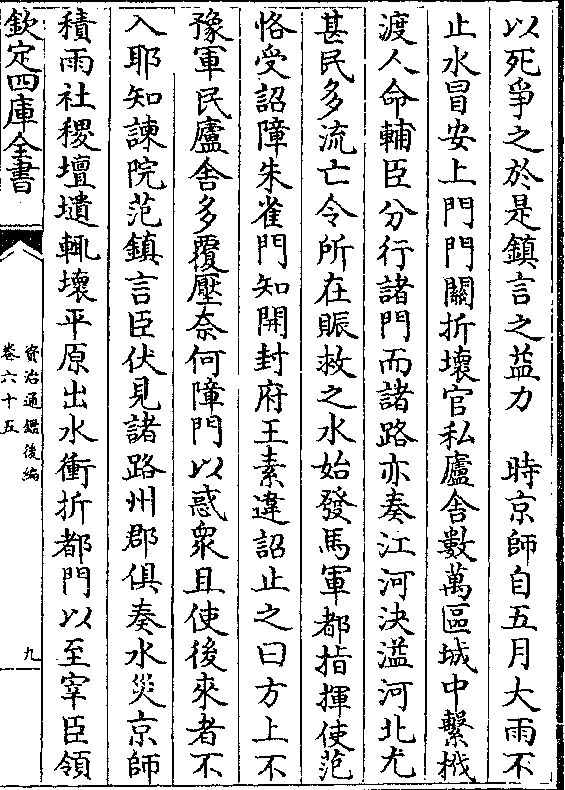 以死爭之於是鎮言之益力　時京師自五月大雨不
止水冒安上門門關折壞官私廬舍數萬區城中繫栰
渡人命輔臣分行諸門而諸路亦奏江河決溢河北尤
甚民多流亡令所在賑救之水始發馬軍都指揮使范
恪受詔障朱雀門知開封府王素違詔止之曰方上不
豫軍民廬舍多覆壓奈何障門以惑衆且使後來者不
入耶知諫院范鎮言臣伏見諸路州郡俱奏水災京師
積雨社稷壇壝輒壞平原出水衝折都門以至宰臣領
欽定四庫全書
資治通鑑後編
卷六十五
九